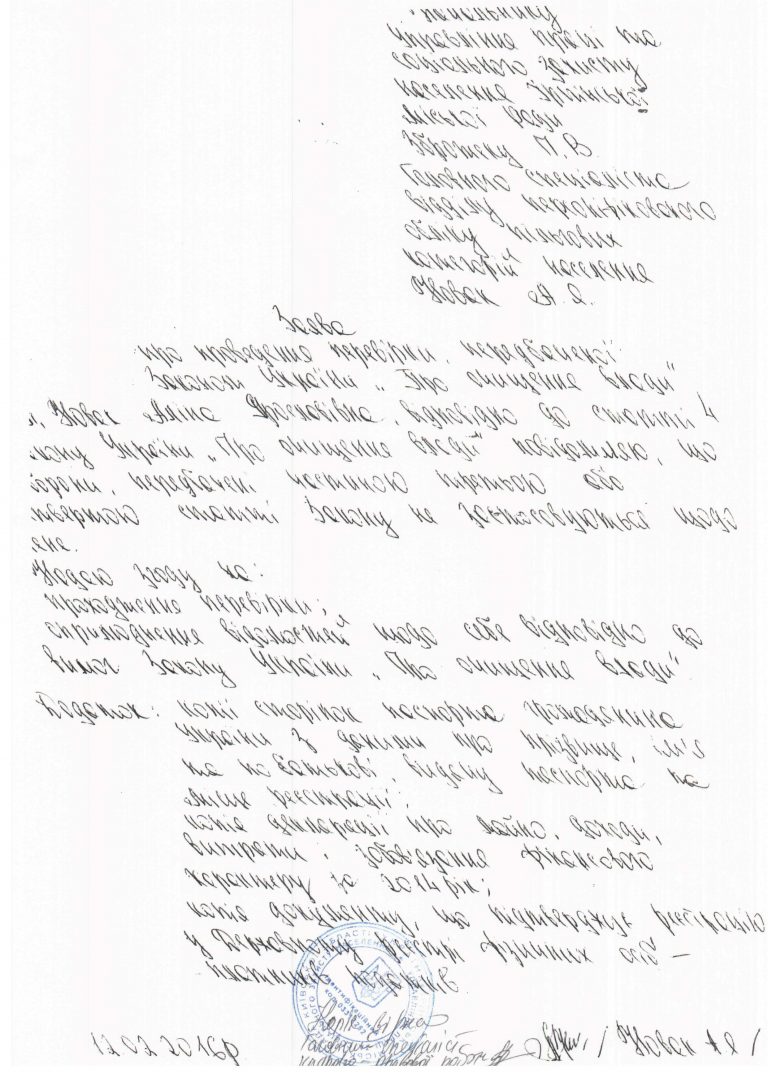 Начальнику
Управління праці та
соціального захисту
населення Ірпінської
міської ради
П.В.
Головного спеціаліста
відділу персоніфікованого
обліку пільгових
категорій населення
Новак А.Я.
Заява
про проведення перевірки, передбаченої
Законом України „Про очищення влади"
я, Новак Аліна Ярославівна, відповідно до статті 4
кону України „Про очищення влади" повідомляю, що
борони, передбачені частиною третьою або
четвертою статті Закону не застосовуються щодо
ене.
Надаю згоду на:
проходження перевірки;
оприлюднення відомостей щодо себе відповідно до
вимог Закону України „Про очищення влади"
Додаток: копії сторінок паспорта громадянина
України з даними про прізвище, ім'я
та по батькові, видачу паспорта та
місце реєстрації;
копія декларації про майно, доходи,
витрати і зобов'язання фінансового
характеру за 2014 рік;
копія документу, що підтверджує реєстрацію
у Державному реєстрі фізичних осіб –
платників податків
Копія вірна
Головний спеціаліст
кадрово-правової роботи
12.02.2016р / Новак А.Я /